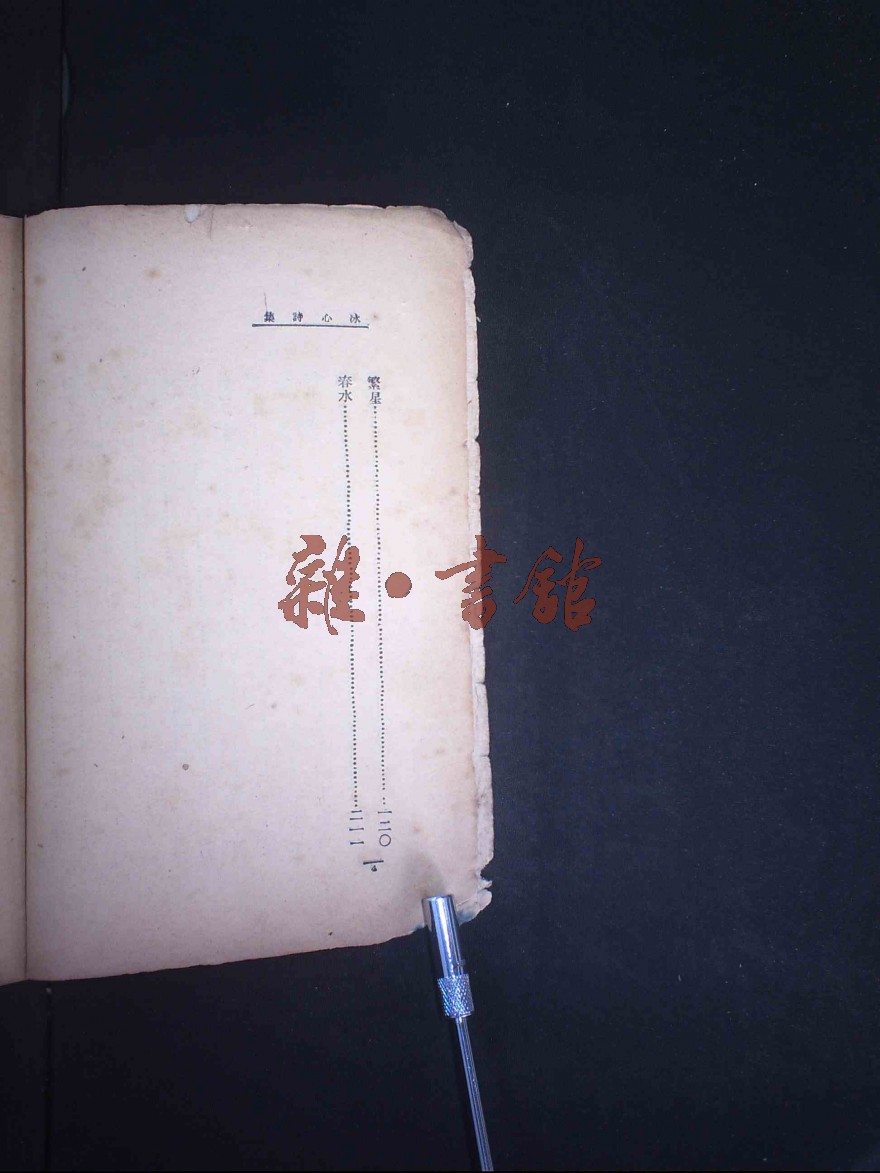 冰心詩集
繁星……………………一二〇
春水……………………二一一
雜·書館